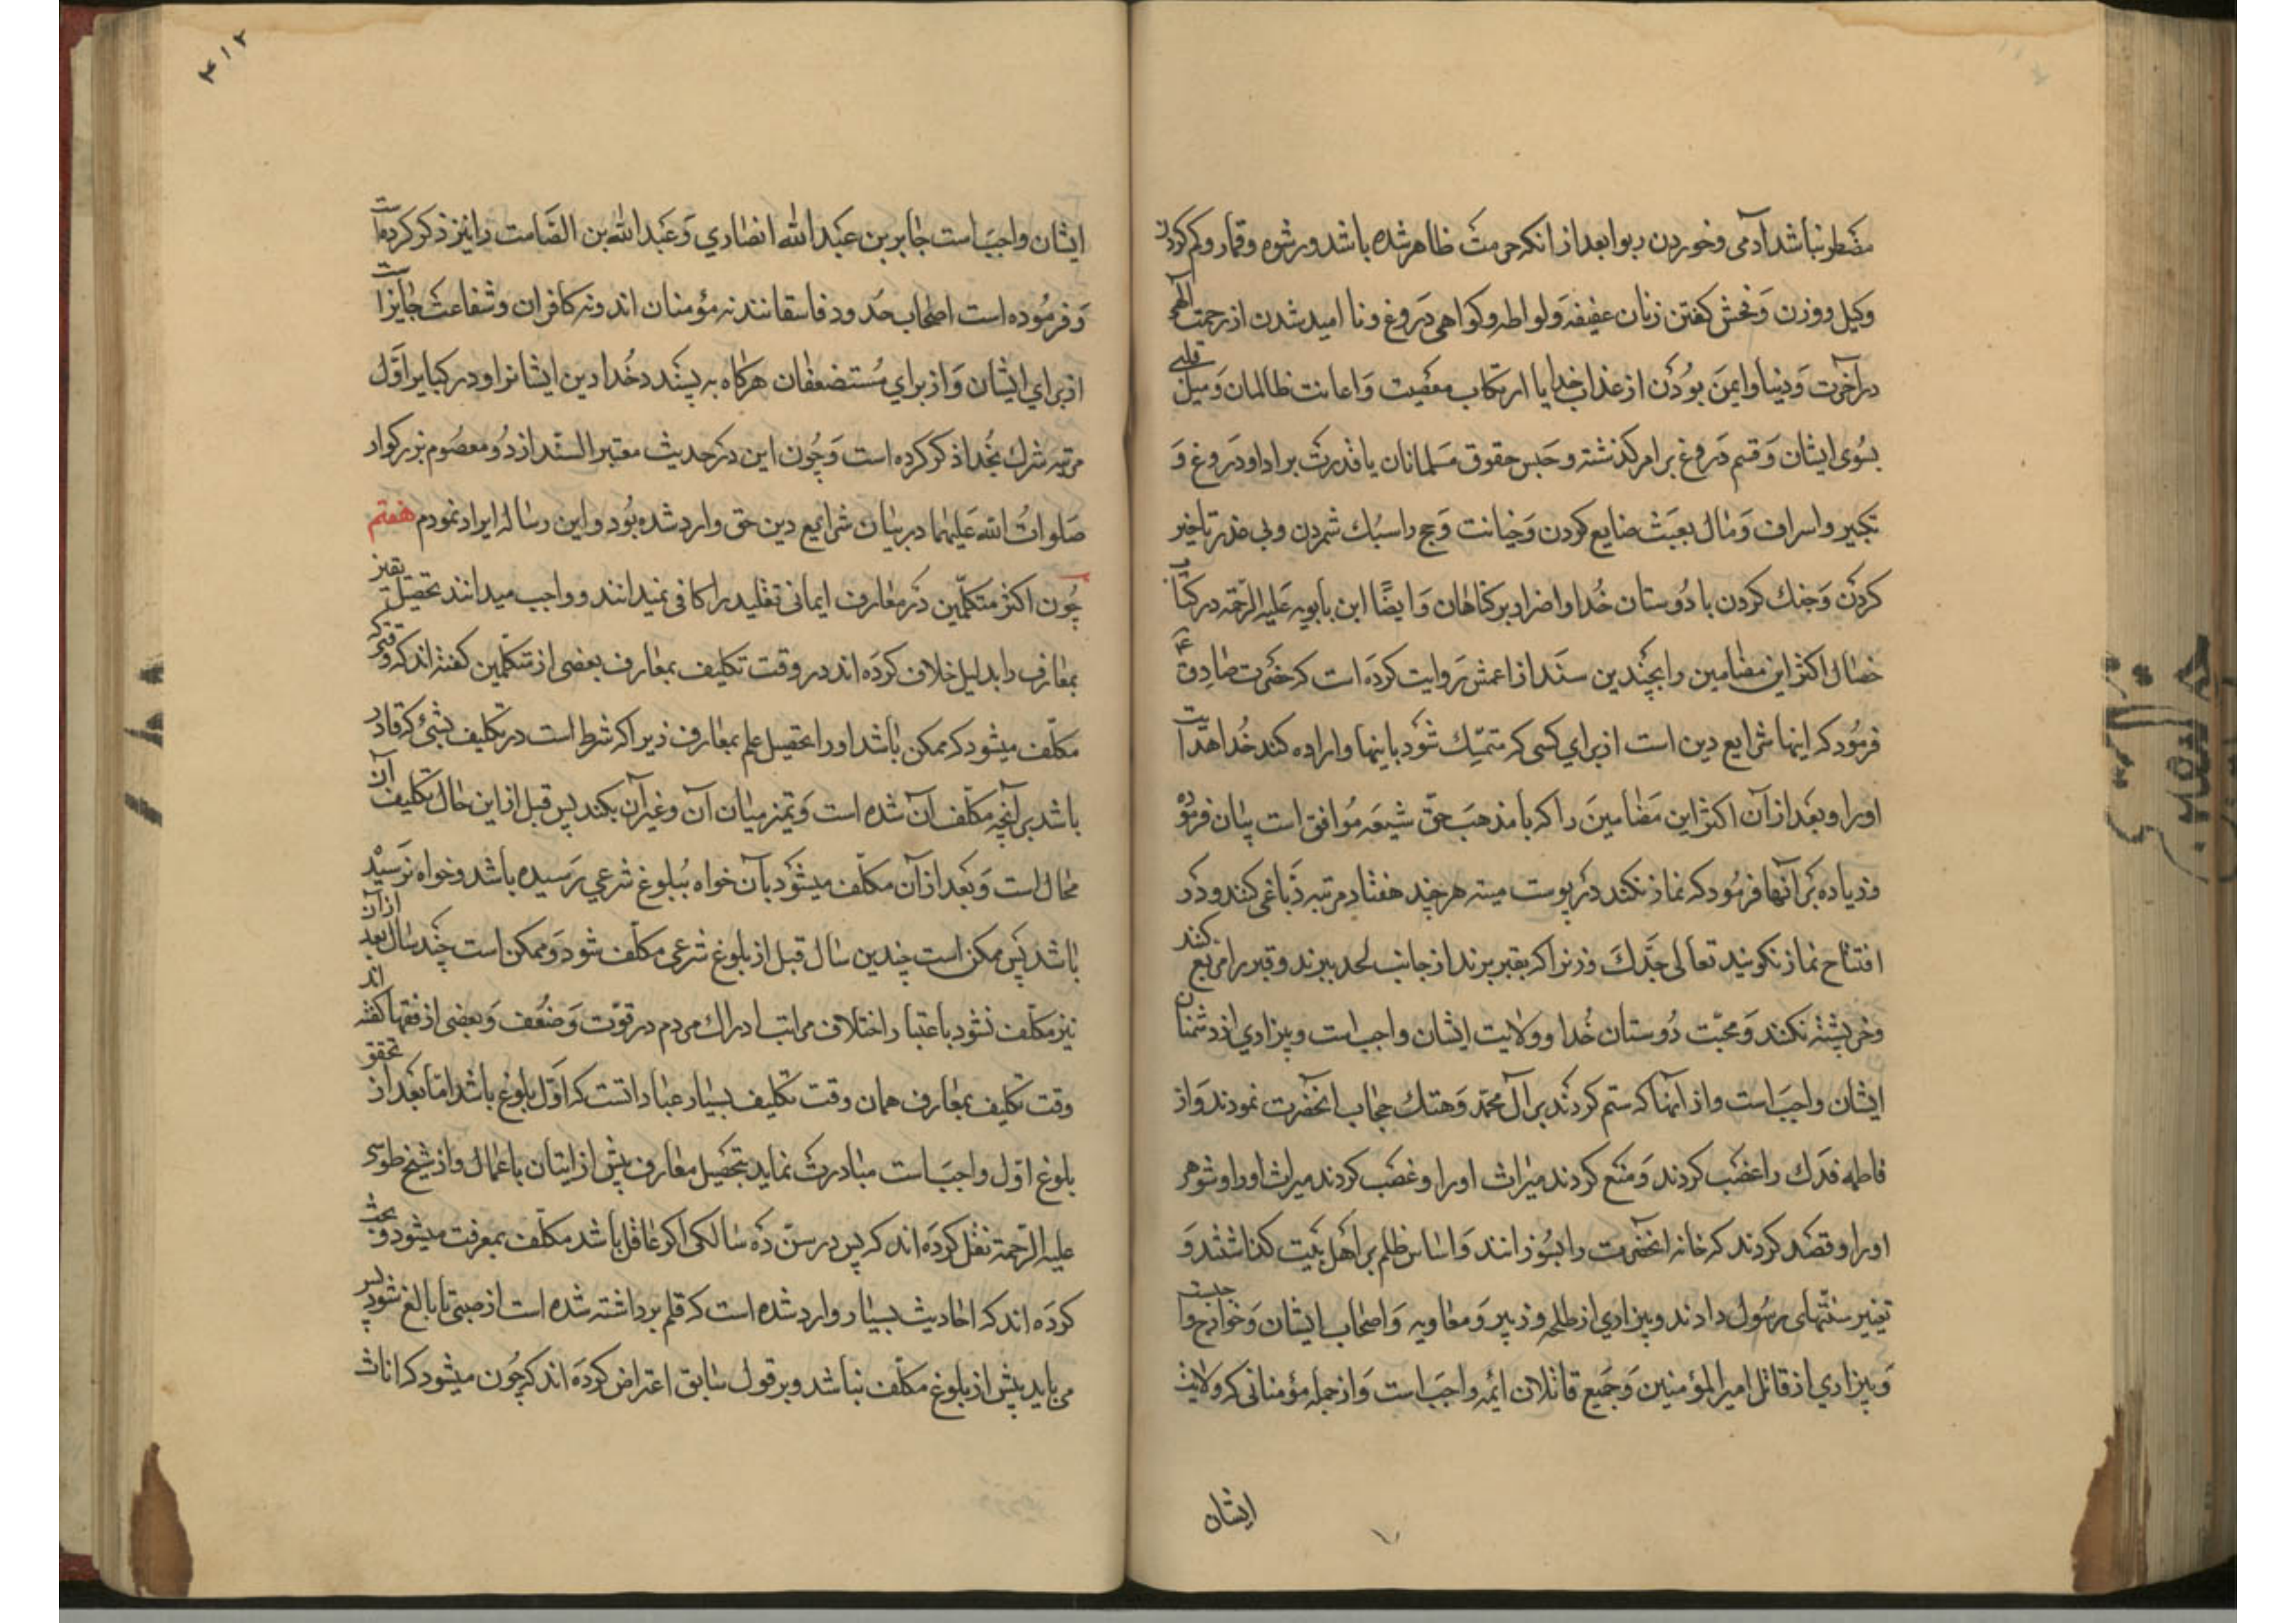 مضطر نباشد آدمی و خوردن ربوا بعد از انکه حرمتش ظاهر شده باشد و رشوه و قمار و کم کردن
وکیل و وزن وَ فحش کفتن زنان عفیفه وَ لواطه و کواهی دَروغ و نا امید شدن از رحمت الٓهی
در آخرت وَ دنیا و ایمَن بوُدَن از عذاب خدا یا ارتکاب معصیت وَ اعانت ظالمان وَ میل قلبی
بسُوی ایشان وَ قسم دَروغ بر امر کذشته و حَبس حقوق مَسلمانان با قدرت بر ادا و دَروغ وَ
تکبر و اسراف وَ مال بعبَث ضایع کردن وَ خیانت وَ حج را سبُك شمردن و بی عذر تاخیر
کردَن وَ جنك کردن با دُوستان خُدا و اصرار بر کناهان وَ ایضًا ابن بابویه عَلیه الرّحمه در کتاب
خصال اکثر این مضامین را بچَندین سنَد از اعمش رَوایت کردَه است که حضَرت صٰادِق ع
فرمُود که اینها شرایع دین است از برای کسی که متمسّك شوَد باینها و اراده کند خُدا هدایت
اورا و بعَد از آن اکثر این مَضٰامینَ را که با مذهبَ حقّ شیعَه مُوافق است بیٰان فرمُوده
و زیاده بَر آنها فرمُود که نماز نکنند در پوست میته هر چند هفتاد مرتبه دَبّاغی کنند و دَر
افتتاح نماز نکویند تعالی جَدّكَ و زنرا که بقبر برند از جانب لحد ببرند و قبر را مربّع کنند
و خرپشته نکنند وَ محبّت دُوستان خُدا و ولایت ایشان واجب است و بیزاری از دشمنان
ایشان واجبَ است و از آنها که ستم کردند بَر آل محمّد وَ هتك حجٰاب آنحضَرت نمودند وَ از
فاطمه فدَك را غصَب کردند وَ منَع کردند میرٰاث اورا و غصَب کردند میراث اورا و شوهر
اورا و قصَد کردند که خانه آنحضَرت را بسُوزانند وَ اساس ظلم بر اَهل بَیت کذاشتند وَ
تغییر سنّتهای رسُول دادند و بیزاری از طلحه و زبیر وَ معاویه وَ اصحٰاب ایشان وَ خوٰارج واجبست
وَ بیزاری از قاتل امیر المؤمنین وَ جَمیع قاتلان ائمّه واجبَ است وَ از جمله مؤمنانی که ولایت
ایشان
۴۱۲
ایشان واجبَ است جٰابر بن عَبْد الله انصٰاری وَ عَبْد الله بن الصّامت را نیز ذکر کردَه است
وَ فرمُوده است اصحٰاب حدَود فاسقانند نه مؤمنان اند و نه کافران و شفاعت جٰایز است
از برای ایشان وَ از برای مُستضعفٰان هرکاه به پسندد خُدا دین ایشانرا و در کبایر اَوّل
مرتبه شرك بخُدا ذکر کرده است وَ چُون این دو حدیث معتبر السنّد از دُو معصُوم بزرکوار
صَلواتُ الله عَلیهما در بیٰان شرایع دین حق وارد شده بُود در این رسٰاله ایراد نمودم هفتم
چُون اکثر متکلّمین دَر معٰارف ایمانی تقلید را کافی نمیدانند و واجب میدانند تحصیل یقین
بمعٰارف را بدلیل خلاف کردَه اند در وقت تکلیف بمعٰارف بعضی از متکلّمین کفته اند که وقتی که
مکلّف میشود که ممکن باشد اورا تحصیل علم بمعٰارف زیرا که شرط است در تکلیف بشئ که قادر
باشد بر آنچه مکلّف آن شده است وَ تمیز میٰان آن و غیر آن بکند پس قبل از این حٰال تکلیف آن
محٰال است وَ بعَد از آن مکلّف میشوَد بآن خواه ببُلوغ شرعی رَسیده باشد و خواه نرَسیْده
بٰاشد پس ممکن است چندین سٰال قبل از بلوغ شرعی مکلّف شود وَ ممکن است چَند سٰال بعد از آن
نیز مکلّف نشود باعتبار اختلاف مراتب ادراك مردم در قوّت وَ ضعُف وَ بعضی از فقها کفته اند
وقت تکلیف بمعٰارف همان وقت تکلیف بسٰایر عبٰادات است که اَوّل بلوغ باشد امّا بعَد از تحقق
بلوغ اوّل واجبَ است مبٰادرت نماید بتحصیل معٰارف پیش از اتیان باعمٰال و از شیخ طوسی
علیه الرّحمة نقل کردَه اند که پس در سنّ دَه سٰالکی اکر عٰاقل باشد مکلّف بمعرفت میشود و بحث
کردَه اند که احٰادیث بسیٰار وارد شده است که قلم برداشته شده است از صبیّ تا بالغ شود پس
می باید پیش از بلوغ مکلّف نبٰاشد و بر قول سٰابق اعتراض کردَه اند که چُون میشود که اناث